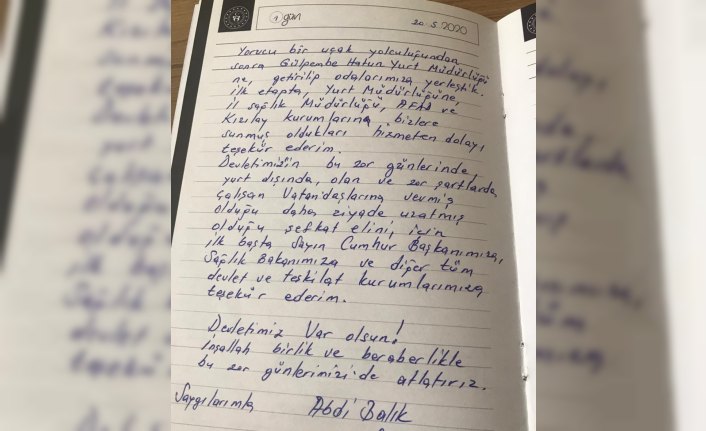 1 gün
20.5.2020
Yorucu bir uçak yolculuğundan
sonra Gülpembe Hatun Yurt Müdürlüğü
ne, getirilip odalarımıza yerleştik.
ilk etapta, Yurt Müdürlüğüne,
il sağlık Müdürlüğü, AFAD ve
Kızılay kurumlarına bizlere
sunmuş oldukları hizmeten dolayı
teşekür ederim.
Devletimizin bu zor günlerinde,
yurt dışında, olan ve zor şartlarda
çalışan Vatandaşlarına vermiş
olduğu daha ziyade uzatmış
olduğu, şefkat elini, için
ilk başta Sayın Cumhur Başkanımıza,
Sağlık Bakanımıza ve diğer tüm
devlet ve teşkilat kurumlarımıza
teşekür ederim.
Devletimiz Var olsun!
inşallah birlik ve beraberlikle
bu zor günlerimizi'de atlatırız.
Saygılarımla Abdi Balık